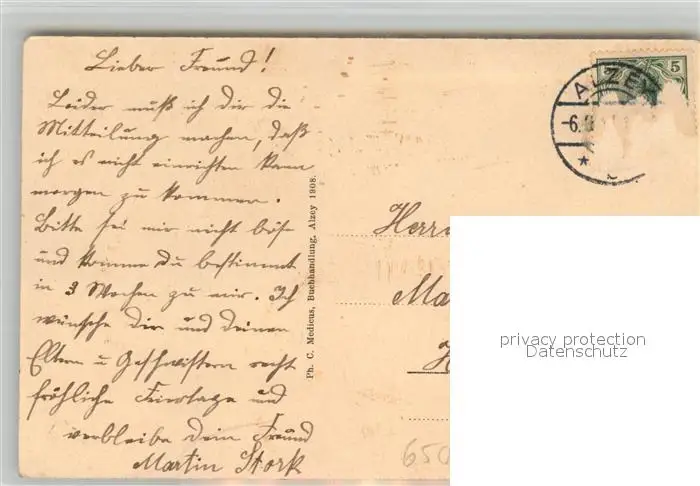 Lieber Freund!
Leider muß ich dir die
Mitteilung machen, daß
ich es nicht einrichten kann
morgen zu kommen.
Bitte sei mir nicht böse
und komme du bestimmt
in 3 Wochen zu mir. Ich
wünsche dir und deinen
Eltern u Geschwistern recht
fröhliche Feiertage und
verbleibe dein Freund
Martin Stork
Ph. C. Medicus, Buchhandlung, Alzey 1908.
5
ALZEY
-6.
Herrn
Ma
H
650
privacy protection
Datenschutz